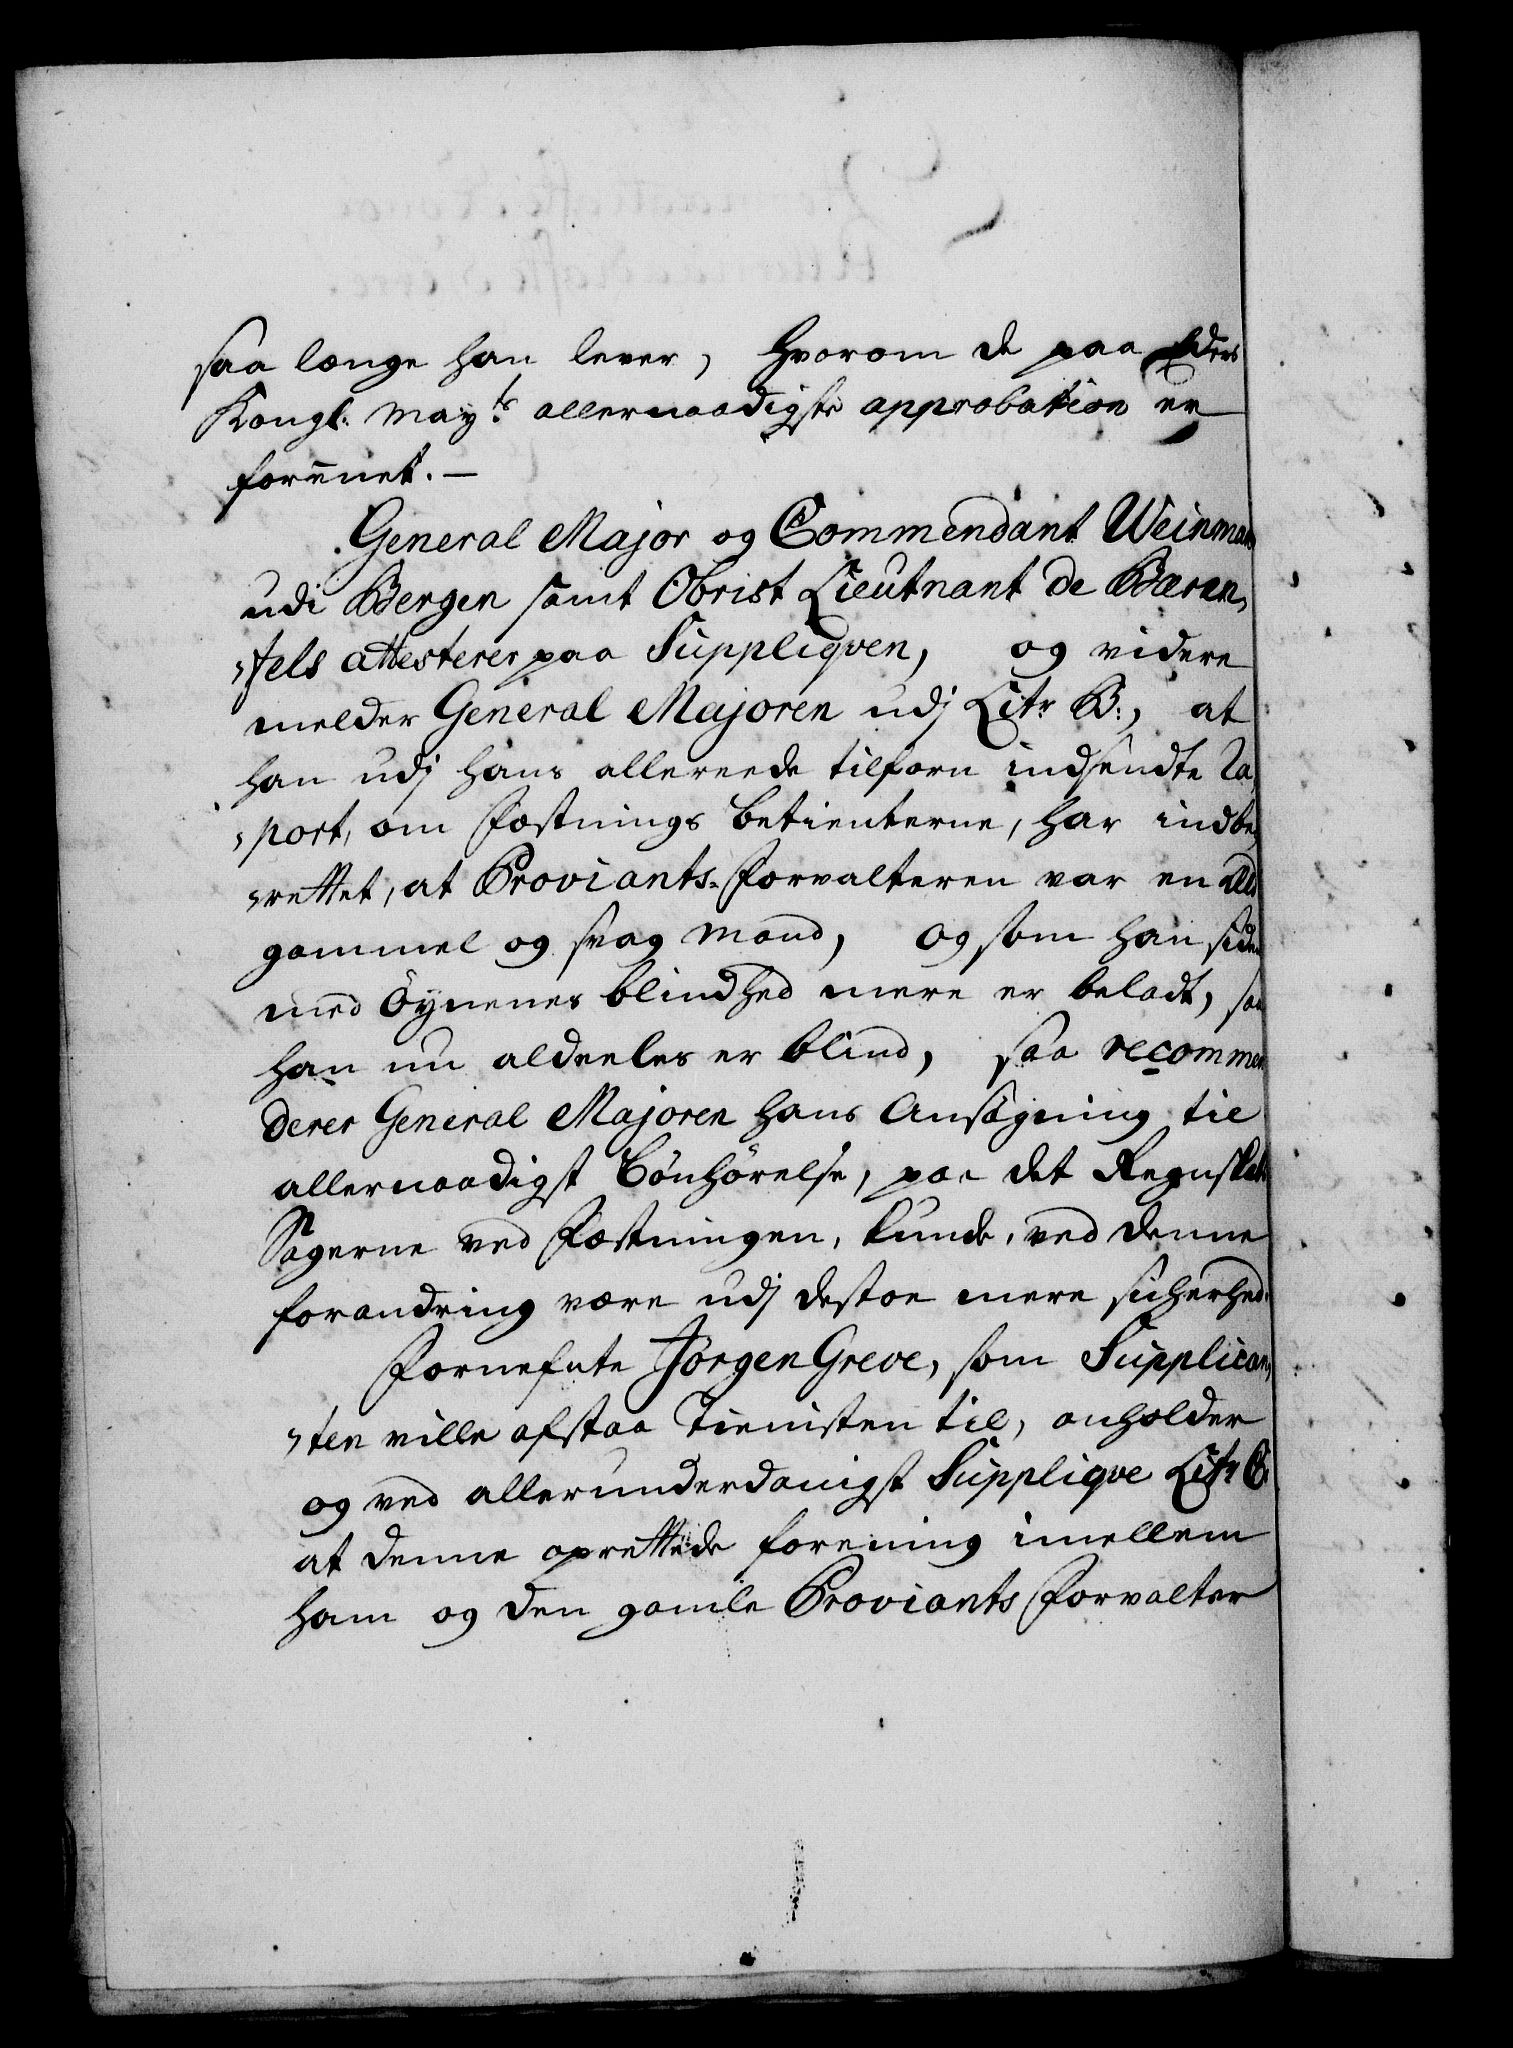 saa længe han lever, hvorom de paa Eders
Kongl: May.ts allernaadigste approbation er
foreenet. —
General Major og Commendant Weinman
udi Bergen samt Obrist Lieutnant de Bæren,
,fels attesterer paa Suppliqven, og videre
melder General Majoren udj Litr B:, at
han udj hans allereede tilforn indsendte Ra,
,port, om Fæstnings betienterne, har indbe,
,rettet, at Proviants-Forvalteren var en Ald
gammel og svag Mand, og som han siden
med Öynenes blindhed mere er beladt, saa
han nu aldeeles er blind, saa recommen
derer General Majoren hans Ansögning til
allernaadigst Bönhörelse, paa det Regnskabs
Sagerne ved Fæstningen, kunde, ved denne
forandring være udj destoe mere sicherhed.
Fornefnte Jörgen Greve, som Supplican,
,ten ville afstaa Tienisten til, anholder
og ved allerunderdanigst Supplique Litr C.
at denne oprettede forening imellem
ham og den gamle Proviants Forvalter